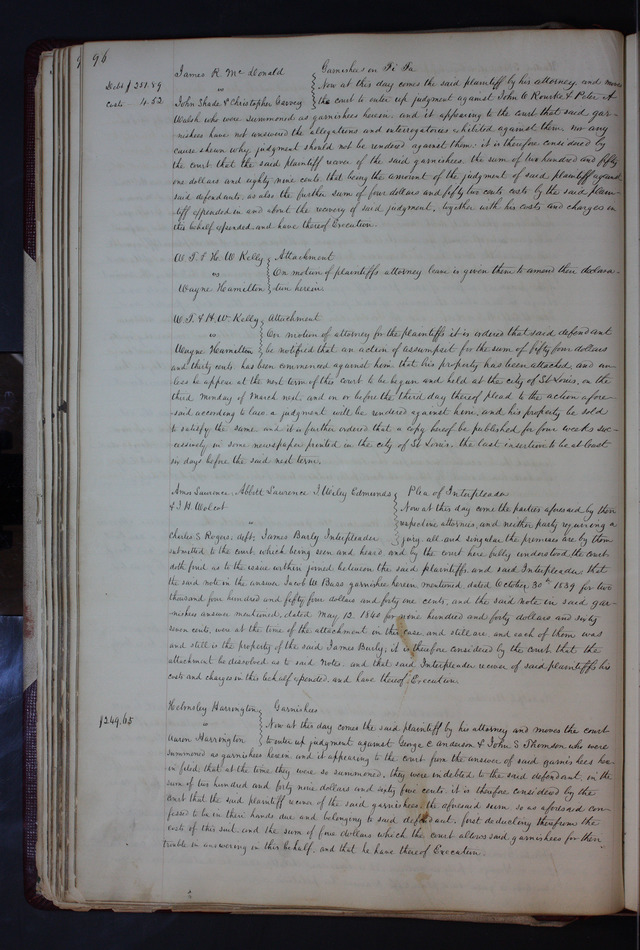 96
James R. McDonald Garnishees on Fi Fa
Debt $251.89 vs Now at this day comes the said plaintiff by his attorney and moves
Costs 4.52 John Shade & Christopher Garvey the court to enter up judgment against John O Rourke & Peter A
Walsh who were summoned as garnishees herein, and it appearing to the court that said gar-
-nishees have not answered the allegations and interrogatories exhibited against them, nor any
cause shewn why judgment should not be rendered against them: it is therefore considered by
the court that the said plaintiff recover of the said garnishees, the sum of two hundred and fifty
one dollars and eighty nine cents, that being the amount of the judgment of said plaintiff against
said defendants, as also the further sum of four dollars and fifty two cents costs by the said plain-
-tiff expended in and about the recovery of said judgment, together with his costs and charges in
this behalf expended, and have thereof Execution.
W. T. & H. W Kelly Attachment
vs On motion of plaintiffs attorney leave is given them to amend their declara-
Wayne Hamilton tion herein
W. T. & H. W. Kelly Attachment
vs On motion of attorney for the plaintiffs it is ordered that said defendant
Wayne Hamilton be notified that an action of assumpsit for the sum of fifty four dollars
and thirty cents has been commenced against him, that his property has been attached, and un-
less he appear at the next term of this court to be begun and held at the city of St Louis, on the
third Monday of March next, and on or before the third day thereof plead to the action afore-
-said according to law a judgment will be rendered against him, and his property be sold
to satisfy the same and it is further ordered that a copy hereof be published for four weeks suc-
cessively in some newspaper printed in the city of St Louis, the last insertion to be at least
six days before the said next term.
Amos Lawrence, Abbott Lawrence, J. Wiley Edmunds Plea of Interpleader
& J. H. Wolcot Now at this day come the parties aforesaid by their
vs respective attornies, and neither party requiring a
Charles S Rogers, deft; James Burly Interpleader jury, all and singular the premises are by them
submitted to the court which being seen and heard and by the court here fully understood the court
doth find as to the issue within joined between the said plaintiffs and said Interpleader that
the said note in the answer Jacob W Bass garnishee herein mentioned dated October 30th 1839 for two
thousand four hundred and fifty four dollars and forty one cents, and the said note in said gar-
-nishees answer mentioned, dated May 12. 1840 for one hundred and forty dollars and sixty
seven cents, were at the time of the attachment in this case and still are, and each of them was
and still is the property of the said James Burly; it is therefore considered by the court that the
attachment be dissolved as to said Notes and that said Interpleader recover of said plaintiffs his
costs and charges in this behalf expended, and have thereof Execution.
Helmsley Harrington Garnishees
$249,65 vs Now at this day comes the said plaintiff by his attorney and moves the court
Aaron Harrington to enter up judgment against George C Anderson & John S Thomson who were
summoned as garnishees herein and it appearing to the court from the answer of said garnishees here-
in filed, that at the time they were so summoned, they were indebted to the said defendant, in the
sum of two hundred and forty nine dollars and sixty five cents. it is therefore considered by the
court that the said plaintiff recover of the said garnishees, the aforesaid sum, so as aforesaid con-
fessed to be in their hands due and belonging to said defendant, first deducting therefrom the
costs of this suit, and the sum of five dollars which the court allows said garnishees for their
trouble in answering in this behalf, and that he have thereof Execution.